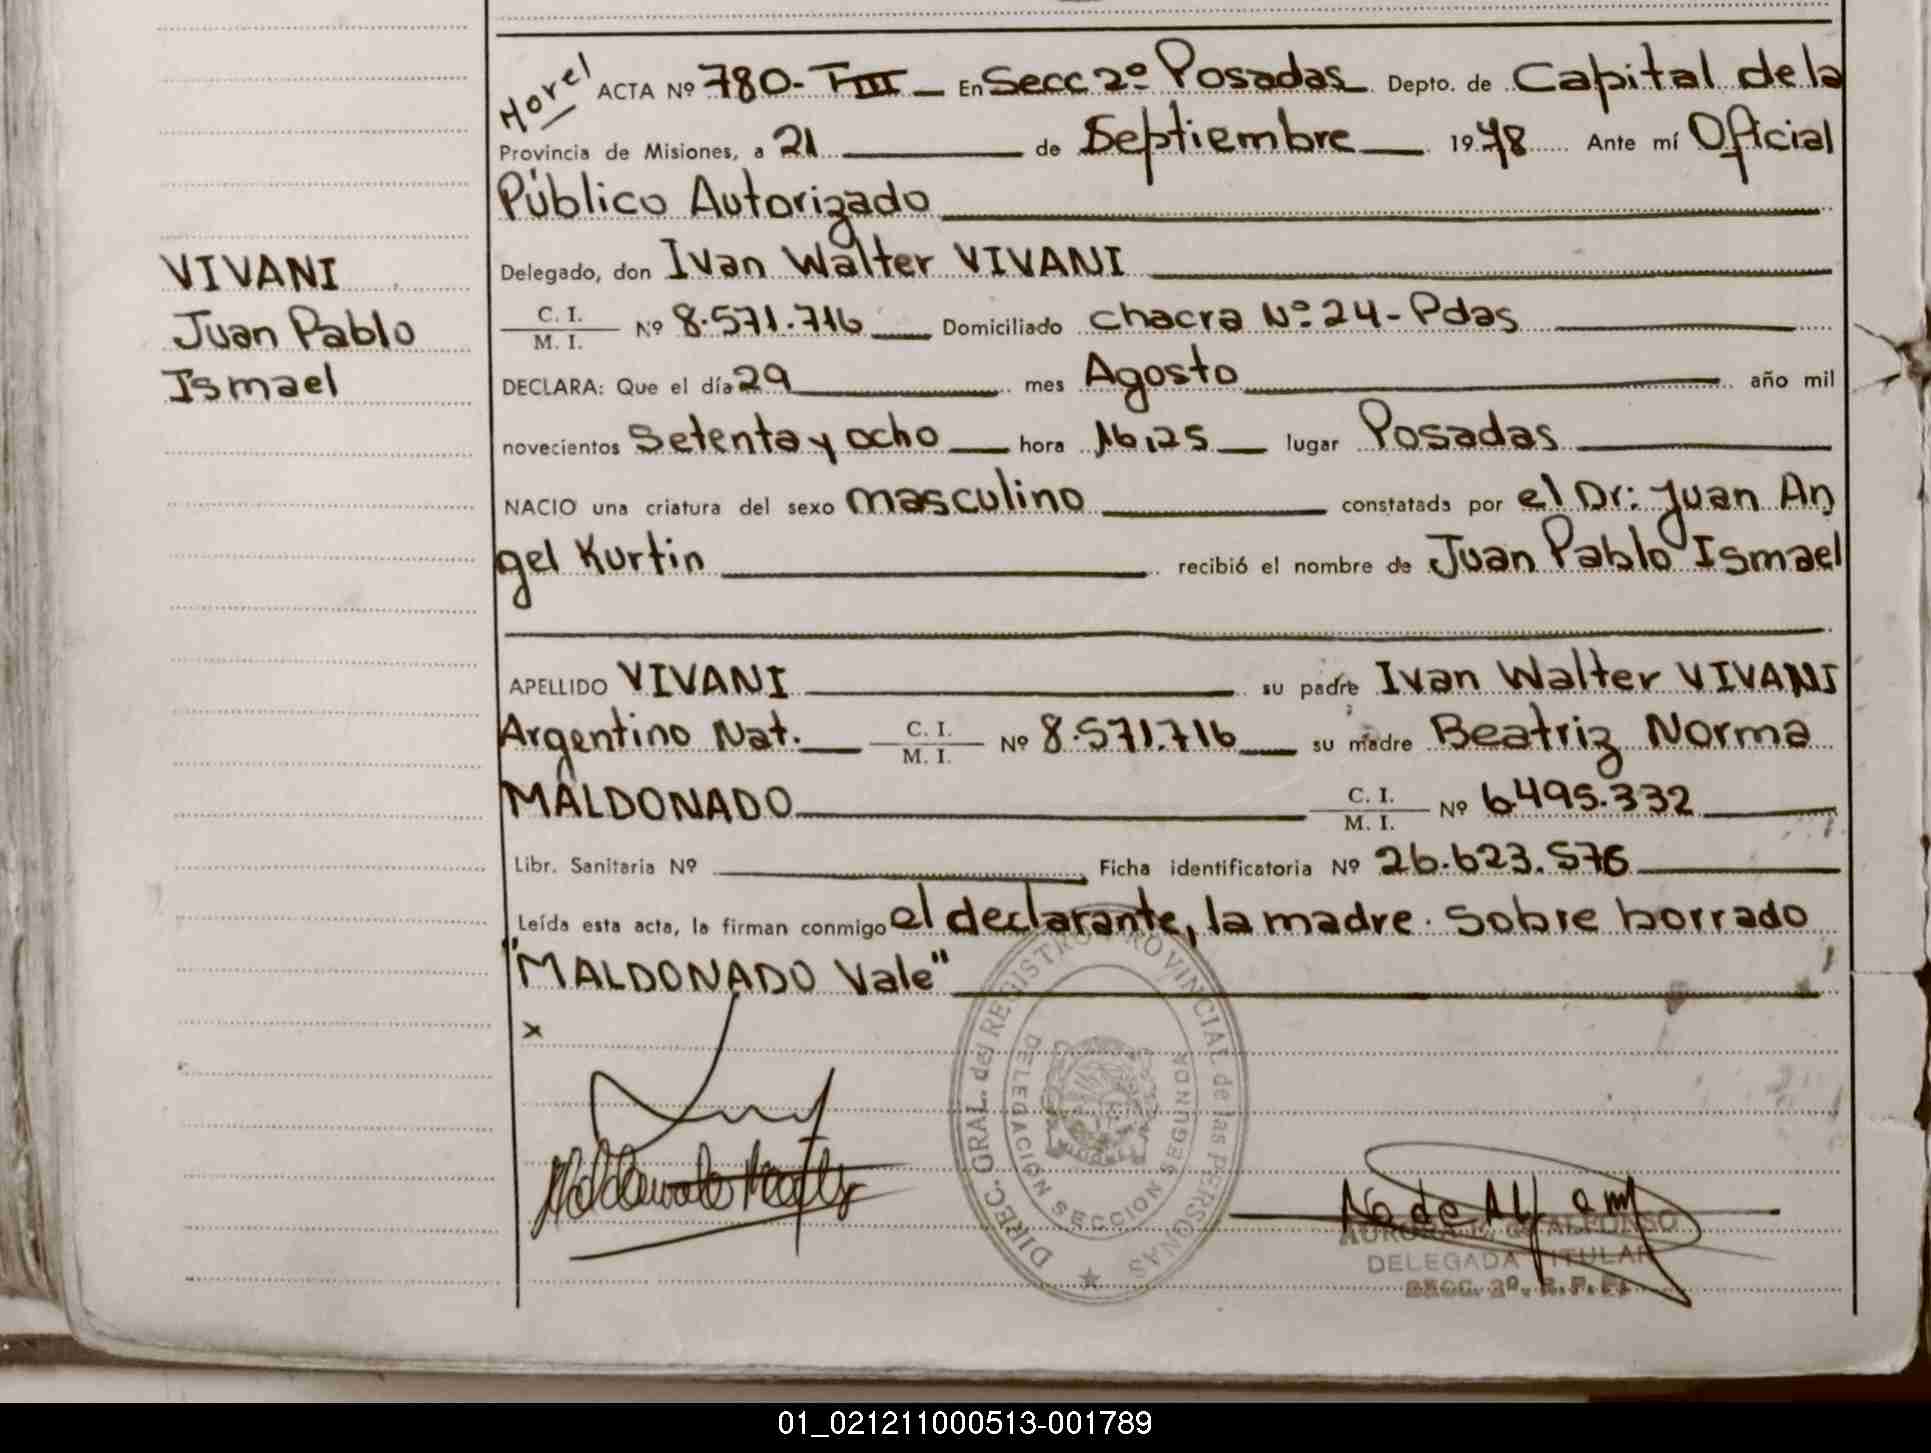 Horel
ACTA Nº 780-TIII En Secc 2º Posadas Depto. de Capital de la
Provincia de Misiones, a 21 de Septiembre 1978 Ante mí Oficial
Público Autorizado
VIVANI
Juan Pablo
Ismael
Delegado, don Ivan Walter VIVANI
C. I.
M. I. Nº 8.571.716 Domiciliado chacra Nº 24-Pdas
DECLARA: Que el día 29 mes Agosto año mil
novecientos setenta y ocho hora 16,25 lugar Posadas
NACIO una criatura del sexo masculino constatada por el Dr: Juan An
gel Kurtin recibió el nombre de Juan Pablo Ismael
APELLIDO VIVANI su padre Ivan Walter VIVANI
Argentino Nat. C. I. M. I. Nº 8.571.716 su madre Beatriz Norma
MALDONADO C. I. M. I. Nº 6.495.332
Libr. Sanitaria Nº Ficha identificatoria Nº 26.623.576
Leída esta acta, la firman conmigo el declarante, la madre. Sobre borrado
"MALDONADO Vale"
x
DIREC. GRAL. del REGISTRO PROVINCIAL de las PERSONAS
DELEGACIÓN SECCION SEGUNDA
ALFONSO
DELEGADA TITULAR
SECC. 2º. R.P.P.
01_021211000513-001789